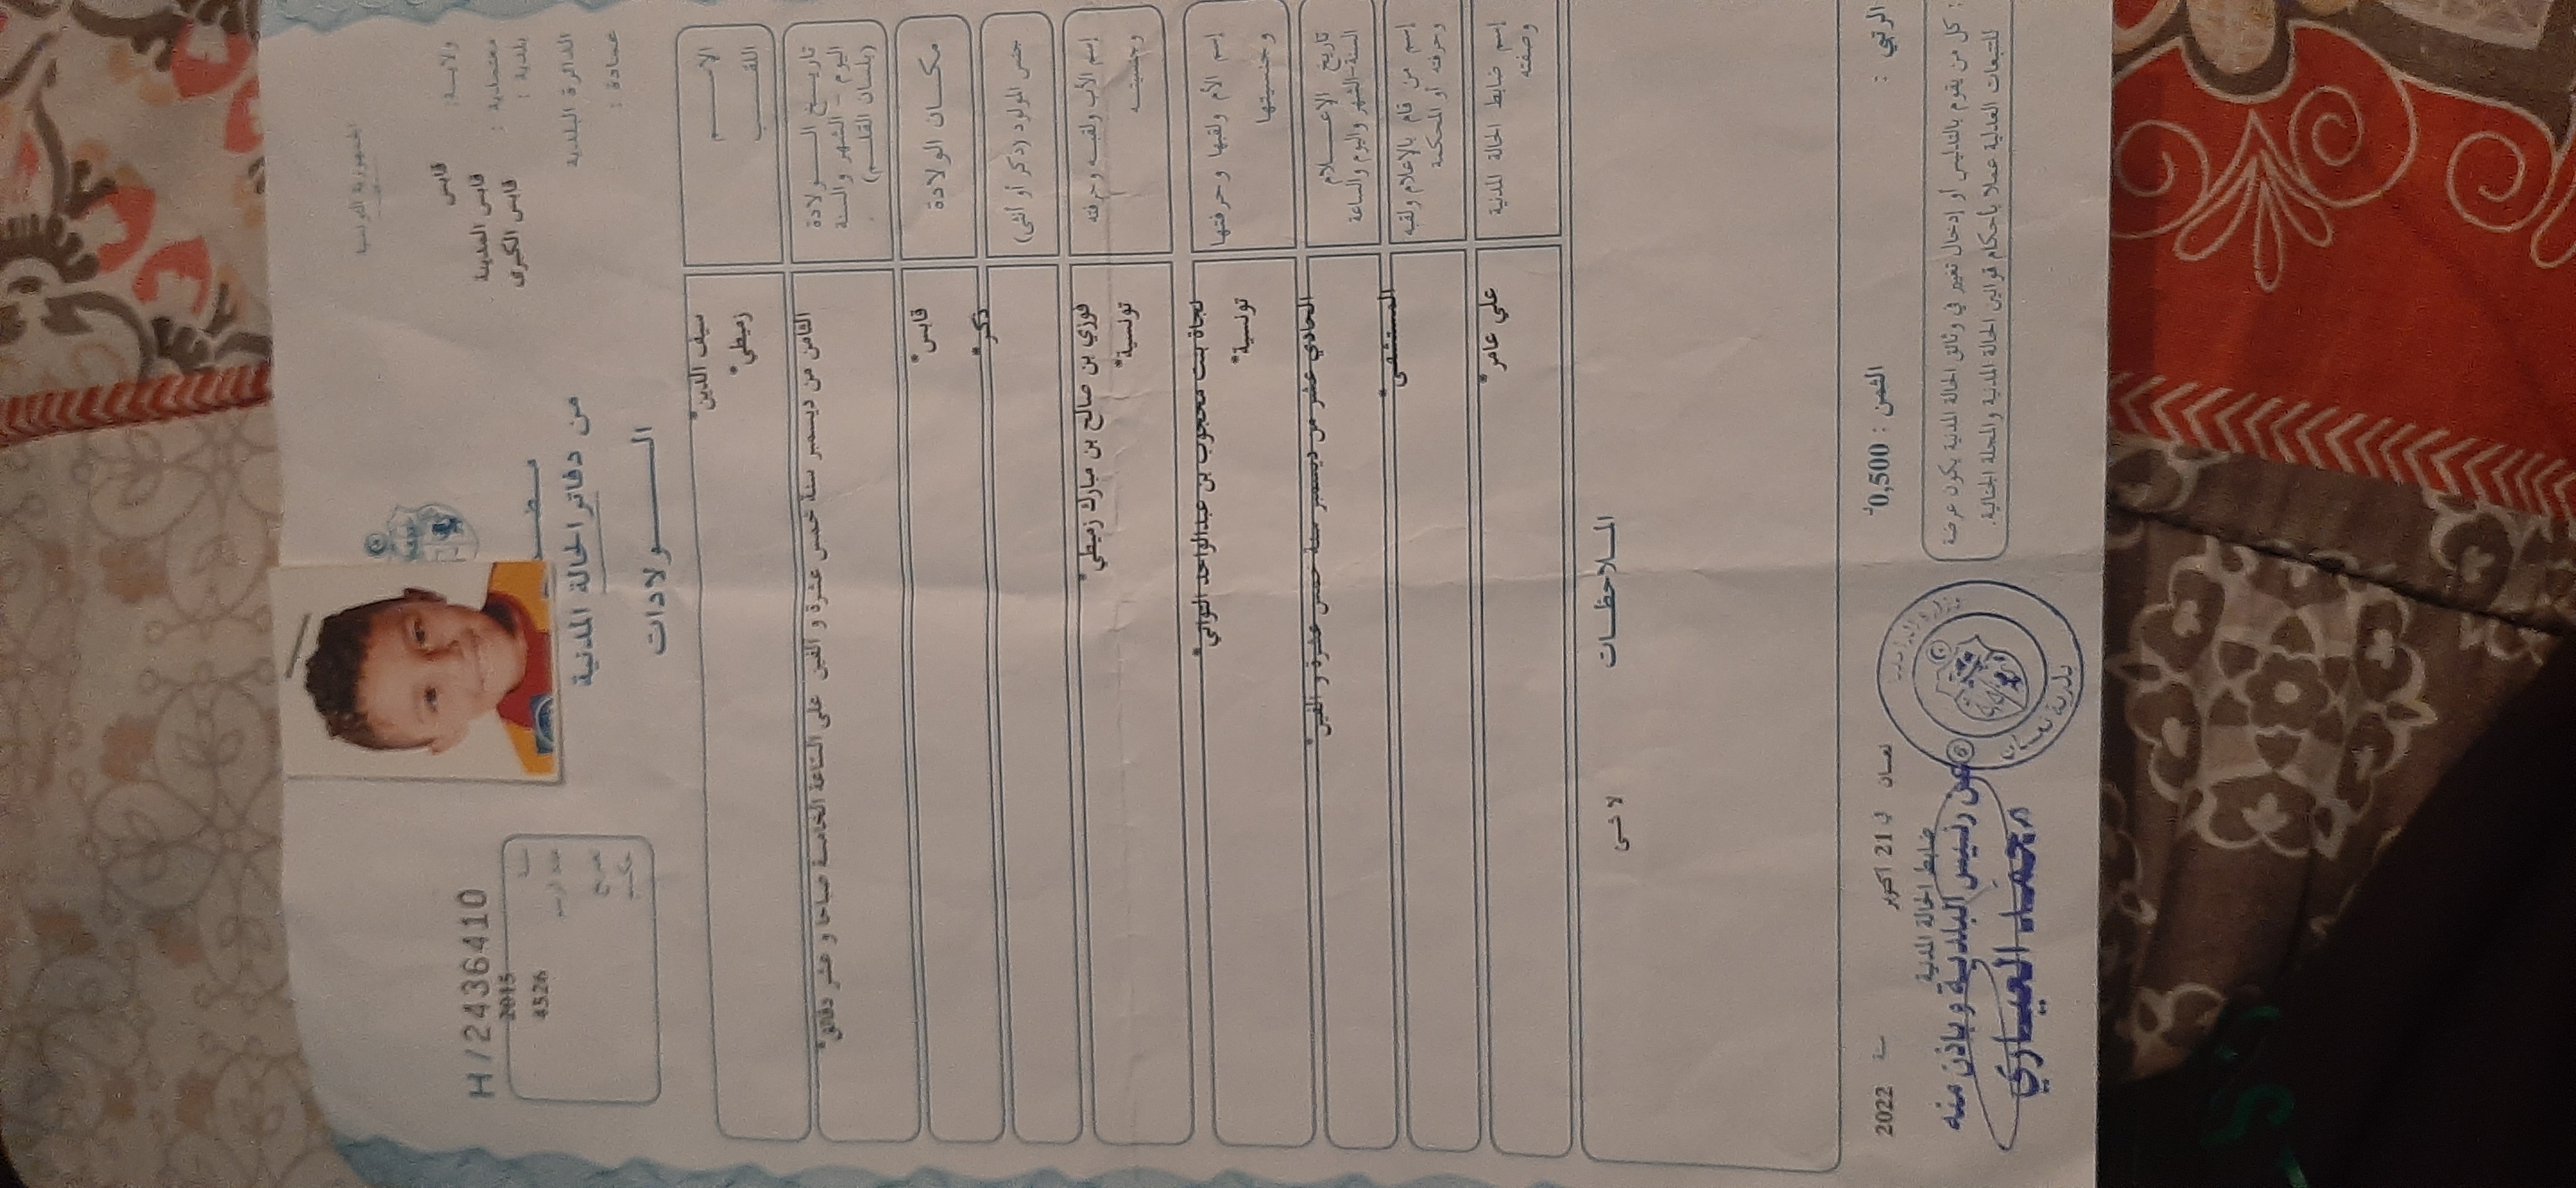 الجمهورية التونسية
ولاية: قابس
معتمدية: قابس المدينة
بلدية: قابس الكبرى
الدائرة البلدية
عمادة:
H/2436410
سنة 2015
عدد الرسم 4526
من دفاتر الحالة المدنية
الـولادات
الاسم سيف الدين*
اللقب زميطي*
تاريخ الولادة الثامن من ديسمبر سنة خمس عشرة و الفين على الساعة الخامسة صباحا و عشر دقائق*
اليوم - الشهر والسنة
(بلسان القلم)
مكان الولادة قابس*
جنس المولود (ذكر أو أنثى) ذكر*
إسم الأب ولقبه وحرفته فوزي بن صالح بن مبارك زميطي*
وجنسيته تونسية*
إسم الأم ولقبها وحرفتها نجاة بنت محجوب بن عبدالواحد التواتي*
وجنسيتها تونسية*
تاريخ الإعلام الحادي عشر من ديسمبر سنة خمس عشرة و الفين*
السنة-الشهر واليوم والساعة
إسم من قام بالإعلام ولقبه المستشفى*
وحرفته أو المحكمة
إسم ضابط الحالة المدنية علي عامر*
وصفته
الملاحظات
لا شى
الثمن : 0,500د
في 21 اكتوبر سنة 2022
ضابط الحالة المدنية
: كل من يقوم بالتدليس أو إدخال تغيير في وثائق الحالة المدنية يكون عرضة
للتتبعات العدلية عملا بأحكام قوانين الحالة المدنية والمجلة الجنائية.
عن رئيس البلدية وبإذن منه
محمد العيساوي